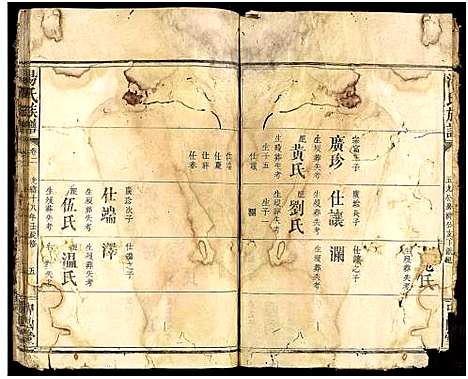 氏族譜
宗富之子
廣珍
生歿葬失考
配
黃氏
生歿葬失考
生子五
仕慶
仕祥
仕春
廣珍長子
仕讓
生歿葬失考
配
劉氏
生歿葬失考
生子一
仕讓之子
瀾
生歿葬失考
氏
湯氏族譜
卷二
光緒十八年壬辰修
五
廣珍次子
仕端
生歿葬失考
配
伍氏
生歿葬失考
仕端之子
澤
生歿葬失考
配
温氏
生歿葬失考